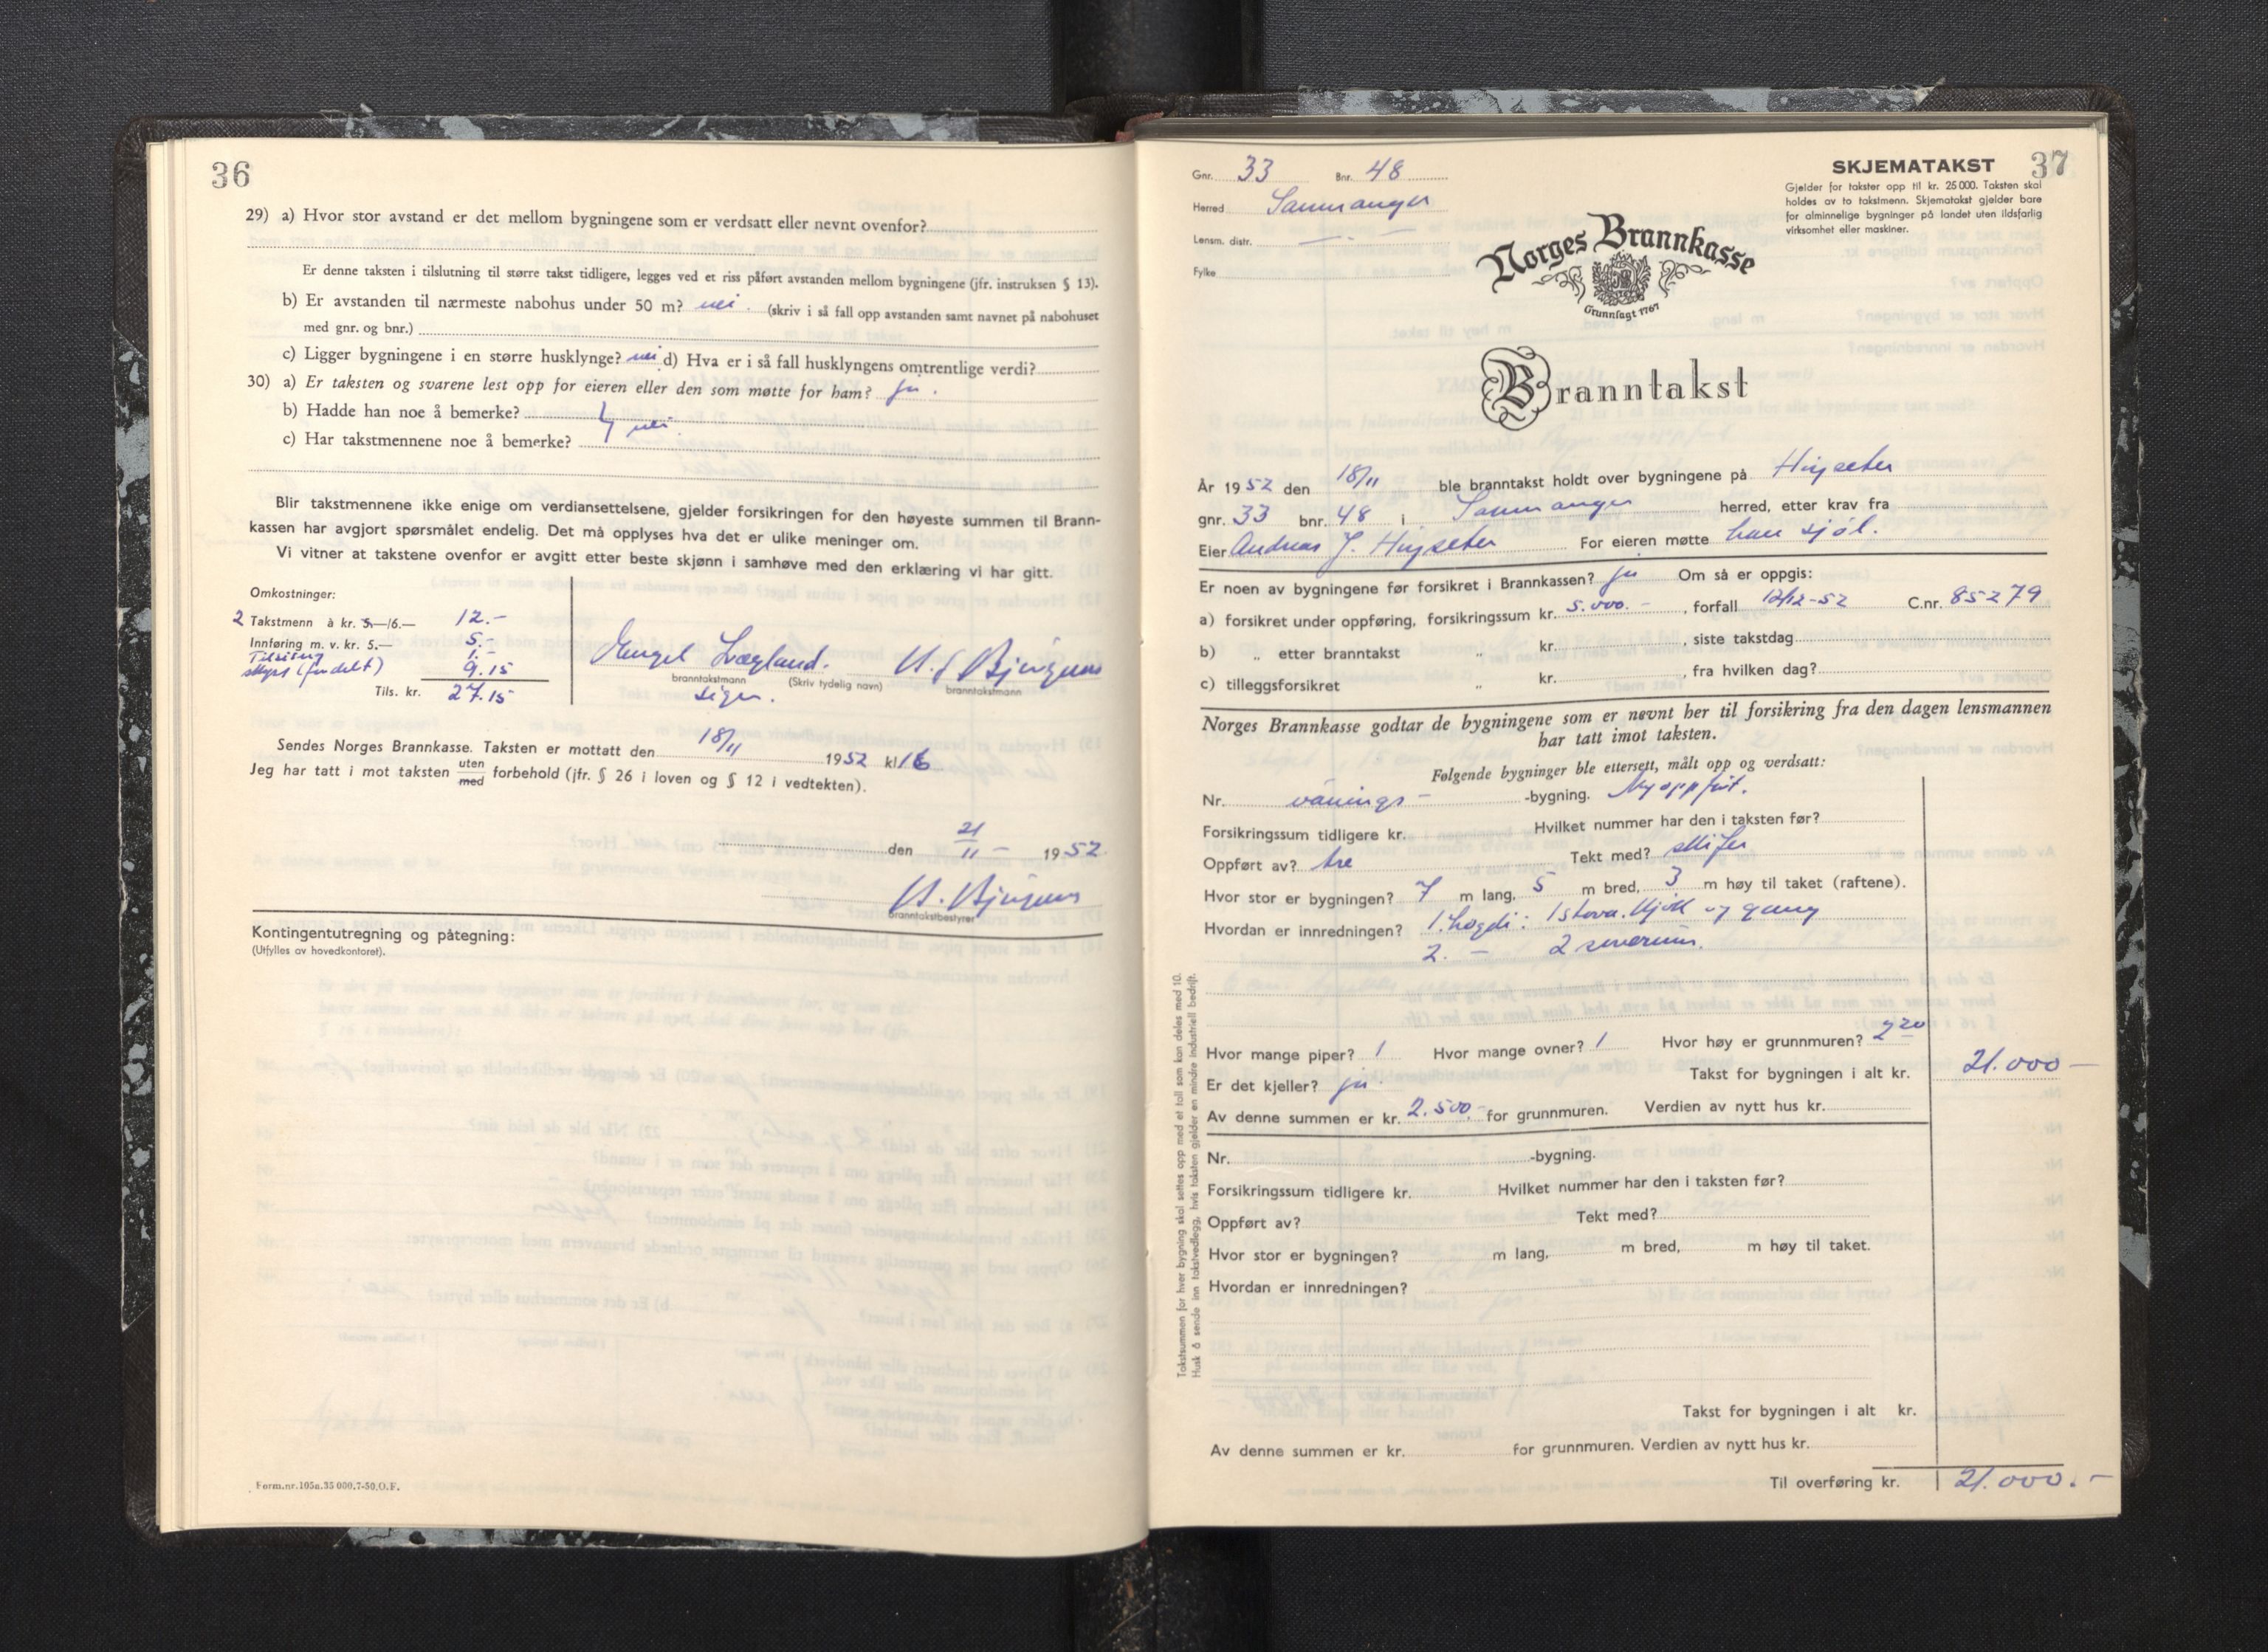 36
29) a) Hvor stor avstand er det mellom bygningene som er verdsatt eller nevnt ovenfor?
Er denne taksten i tilslutning til større takst tidligere, legges ved et riss påført avstanden mellom bygningene (jfr. instruksen § 13).
b) Er avstanden til nærmeste nabohus under 50 m? nei. (skriv i så fall opp avstanden samt navnet på nabohuset
med gnr. og bnr.)
c) Ligger bygningene i en større husklynge? nei d) Hva er i så fall husklyngens omtrentlige verdi?
30) a) Er taksten og svarene lest opp for eieren eller den som møtte for ham? ja.
b) Hadde han noe å bemerke?
c) Har takstmennene noe å bemerke? nei.
Blir takstmennene ikke enige om verdiansettelsene, gjelder forsikringen for den høyeste summen til Brann-
kassen har avgjort spørsmålet endelig. Det må opplyses hva det er ulike meninger om.
Vi vitner at takstene ovenfor er avgitt etter beste skjønn i samhøve med den erklæring vi har gitt.
Omkostninger:
2 Takstmenn à kr. 5.—/6.— 12.-
Innføring m. v. kr. 5.— 5.-
1.-
skyss (fordelt) 9.15
Tils. kr. 27.15
branntakstmann (Skriv tydelig navn) branntakstmann
Sendes Norges Brannkasse. Taksten er mottatt den 18/11 1952 kl 16
Jeg har tatt i mot taksten uten med forbehold (jfr. § 26 i loven og § 12 i vedtekten).
den 21/11 - 1952
branntakstbestyrer
Kontingentutregning og påtegning:
(Utfylles av hovedkontoret).
Form.nr.105a.35 000.7-50.O.F.
37
SKJEMATAKST
Gjelder for takster opp til kr. 25 000. Taksten skal
holdes av to takstmenn. Skjematakst gjelder bare
for alminnelige bygninger på landet uten ildsfarlig
virksomhet eller maskiner.
Gnr. 33 Bnr. 48
Herred Samnanger
Lensm. distr. — " —
Fylke
Norges Brannkasse
Grunnlagt 1767
Branntakst
År 1952 den 18/11 ble branntakst holdt over bygningene på Høyseter
gnr. 33 bnr. 48 i Samnanger herred, etter krav fra
Eier Andreas J. Høyseter For eieren møtte han sjøl.
Er noen av bygningene før forsikret i Brannkassen? ja Om så er oppgis:
a) forsikret under oppføring, forsikringssum kr. 5.000.- , forfall 12/12-52 C.nr. 85279
b) „ etter branntakst „ kr. , siste takstdag
c) tilleggsforsikret „ kr. , fra hvilken dag?
Norges Brannkasse godtar de bygningene som er nevnt her til forsikring fra den dagen lensmannen
har tatt imot taksten.
Følgende bygninger ble ettersett, målt opp og verdsatt:
Nr. vånings- -bygning. Nyoppført.
Forsikringssum tidligere kr. Hvilket nummer har den i taksten før?
Oppført av? tre Tekt med? skifer
Hvor stor er bygningen? 7 m lang, 5 m bred, 3 m høy til taket (raftene).
Hvordan er innredningen? 1. høgdi: 1 stova. kjøk og gang
2. — 2 soverum.
Hvor mange piper? 1 Hvor mange ovner? 1 Hvor høy er grunnmuren? 2 20
Er det kjeller? ja. Takst for bygningen i alt kr. 21.000 -
Av denne summen er kr. 2.500.- for grunnmuren. Verdien av nytt hus kr.
Nr. -bygning.
Forsikringssum tidligere kr. Hvilket nummer har den i taksten før?
Oppført av? Tekt med?
Hvor stor er bygningen? m lang, m bred, m høy til taket.
Hvordan er innredningen?
Takst for bygningen i alt kr.
Av denne summen er kr. for grunnmuren. Verdien av nytt hus kr.
Til overføring kr. 21.000.-
Takstsummen for hver bygning skal settes opp med et tall som kan deles med 10.
Husk å sende inn takstvedlegg, hvis taksten gjelder en mindre industriell bedrift.